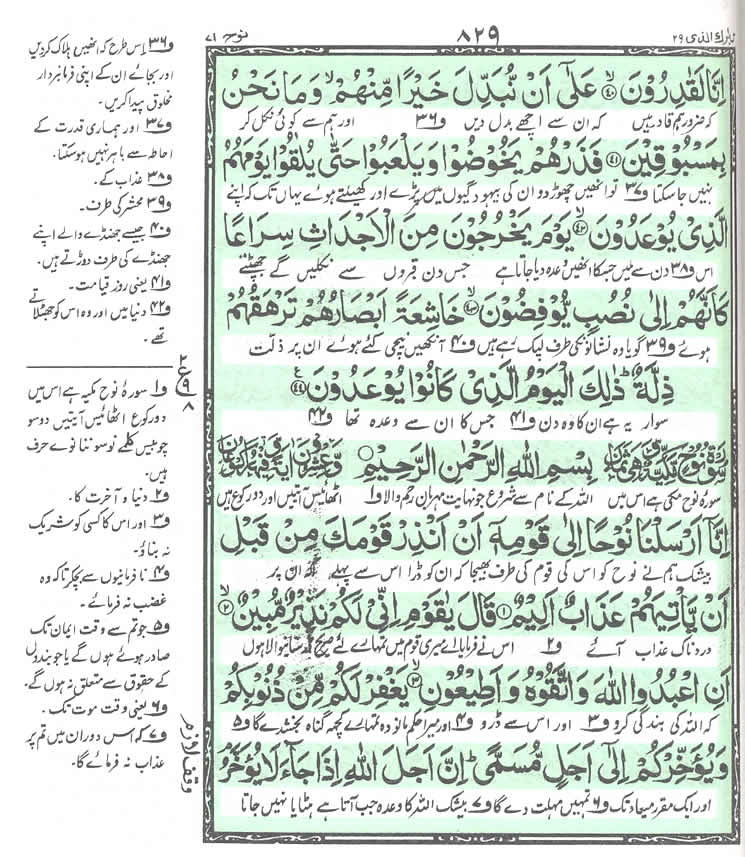 تبارك الذی ۲۹
۸۲۹
نوح ۷۱
اِنَّا لَقٰدِرُوْنَ ﴿۴۰﴾ عَلٰٓی اَنْ نُّبَدِّلَ خَیْرًا مِّنْهُمْ ۙ وَمَا نَحْنُ
کہ ضرور ہم قادر ہیں کہ ان سے اچھے بدل دیں و۳۶ اور ہم سے کوئی نکل کر
بِمَسْبُوْقِیْنَ ﴿۴۱﴾ فَذَرْهُمْ یَخُوْضُوْا وَیَلْعَبُوْا حَتّٰی یُلٰقُوْا یَوْمَهُمُ
نہیں جا سکتا و۳۷ تو انھیں چھوڑ دو ان کی بیہودگیوں میں پڑے اور کھیلتے ہوئے یہاں تک کہ اپنے
الَّذِیْ یُوْعَدُوْنَ ﴿۴۲﴾ یَوْمَ یَخْرُجُوْنَ مِنَ الْاَجْدَاثِ سِرَاعًا
اس و۳۸ دن سے ملیں جس کا انھیں وعدہ دیا جاتا ہے جس دن قبروں سے نکلیں گے جھپٹتے
كَاَنَّهُمْ اِلٰی نُصُبٍ یُّوْفِضُوْنَ ﴿۴۳﴾ خَاشِعَةً اَبْصَارُهُمْ تَرْهَقُهُمْ
ہوئے و۳۹ گویا وہ نشانوں کی طرف لپک رہے ہیں و۴۰ آنکھیں نیچی کئے ہوئے ان پر ذلت
ذِلَّةٌ ؕ ذٰلِكَ الْیَوْمُ الَّذِیْ كَانُوْا یُوْعَدُوْنَ ﴿۴۴﴾
سوار یہ ہے ان کا وہ دن و۴۱ جس کا ان سے وعدہ تھا و۴۲
بِسْمِ اللهِ الرَّحْمٰنِ الرَّحِیْمِ
سورہ نوح مکی ہے اس میں اللہ کے نام سے شروع جو نہایت مہربان رحم والا و۱ اٹھائیس آیتیں اور دو رکوع ہیں
اِنَّاۤ اَرْسَلْنَا نُوْحًا اِلٰی قَوْمِهٖۤ اَنْ اَنْذِرْ قَوْمَكَ مِنْ قَبْلِ
بیشک ہم نے نوح کو اس کی قوم کی طرف بھیجا کہ ان کو ڈرا اس سے پہلے کہ ان پر
اَنْ یَّاْتِیَهُمْ عَذَابٌ اَلِیْمٌ ﴿۱﴾ قَالَ یٰقَوْمِ اِنِّیْ لَكُمْ نَذِیْرٌ مُّبِیْنٌ ﴿۲﴾
دردناک عذاب آئے و۲ اس نے فرمایا اے میری قوم میں تمہارے لئے صریح ڈر سنانیوالا ہوں
اَنِ اعْبُدُوا اللهَ وَاتَّقُوْهُ وَاَطِیْعُوْنِ ﴿۳﴾ یَغْفِرْ لَكُمْ مِّنْ ذُنُوْبِكُمْ
کہ اللہ کی بندگی کرو و۳ اور اس سے ڈرو و۴ اور میرا حکم مانو وہ تمہارے کچھ گناہ بخشدے گا و۵
وَیُؤَخِّرْكُمْ اِلٰۤی اَجَلٍ مُّسَمًّی ؕ اِنَّ اَجَلَ اللهِ اِذَا جَآءَ لَا یُؤَخَّرُ
اور ایک مقرر میعاد تک و۶ تمہیں مہلت دے گا و۷ بیشک اللہ کا وعدہ جب آتا ہے ہٹایا نہیں جاتا
و۳۶ اس طرح کہ انھیں ہلاک کردیں
اور بجائے ان کے اپنی فرمانبردار
مخلوق پیدا کریں۔
و۳۷ اور ہماری قدرت کے
احاطہ سے باہر نہیں ہو سکتا۔
و۳۸ عذاب کے۔
و۳۹ محشر کی طرف۔
و۴۰ جیسے جھنڈے والے اپنے
جھنڈے کی طرف دوڑتے ہیں۔
و۴۱ یعنی روز قیامت۔
و۴۲ دنیا میں اور وہ اس کو جھٹلاتے
تھے۔
ع
۹
۸
و۱ سورۂ نوح مکیہ ہے اس میں
دو رکوع اٹھائیس آیتیں دو سو
چوبیس کلمے نو سو ننانوے حرف
ہیں۔
و۲ دنیا و آخرت کا۔
و۳ اور اس کا کسی کو شریک
نہ بناؤ۔
و۴ نافرمانیوں سے بچکر تاکہ وہ
غضب نہ فرمائے۔
و۵ جو تم سے وقت ایمان تک
صادر ہوئے ہوں گے یا جو بندوں
کے حقوق سے متعلق نہ ہوں گے۔
و۶ یعنی وقت موت تک۔
و۷ کہ اس دوران میں تم پر
عذاب نہ فرمائے گا۔
وقف لازم